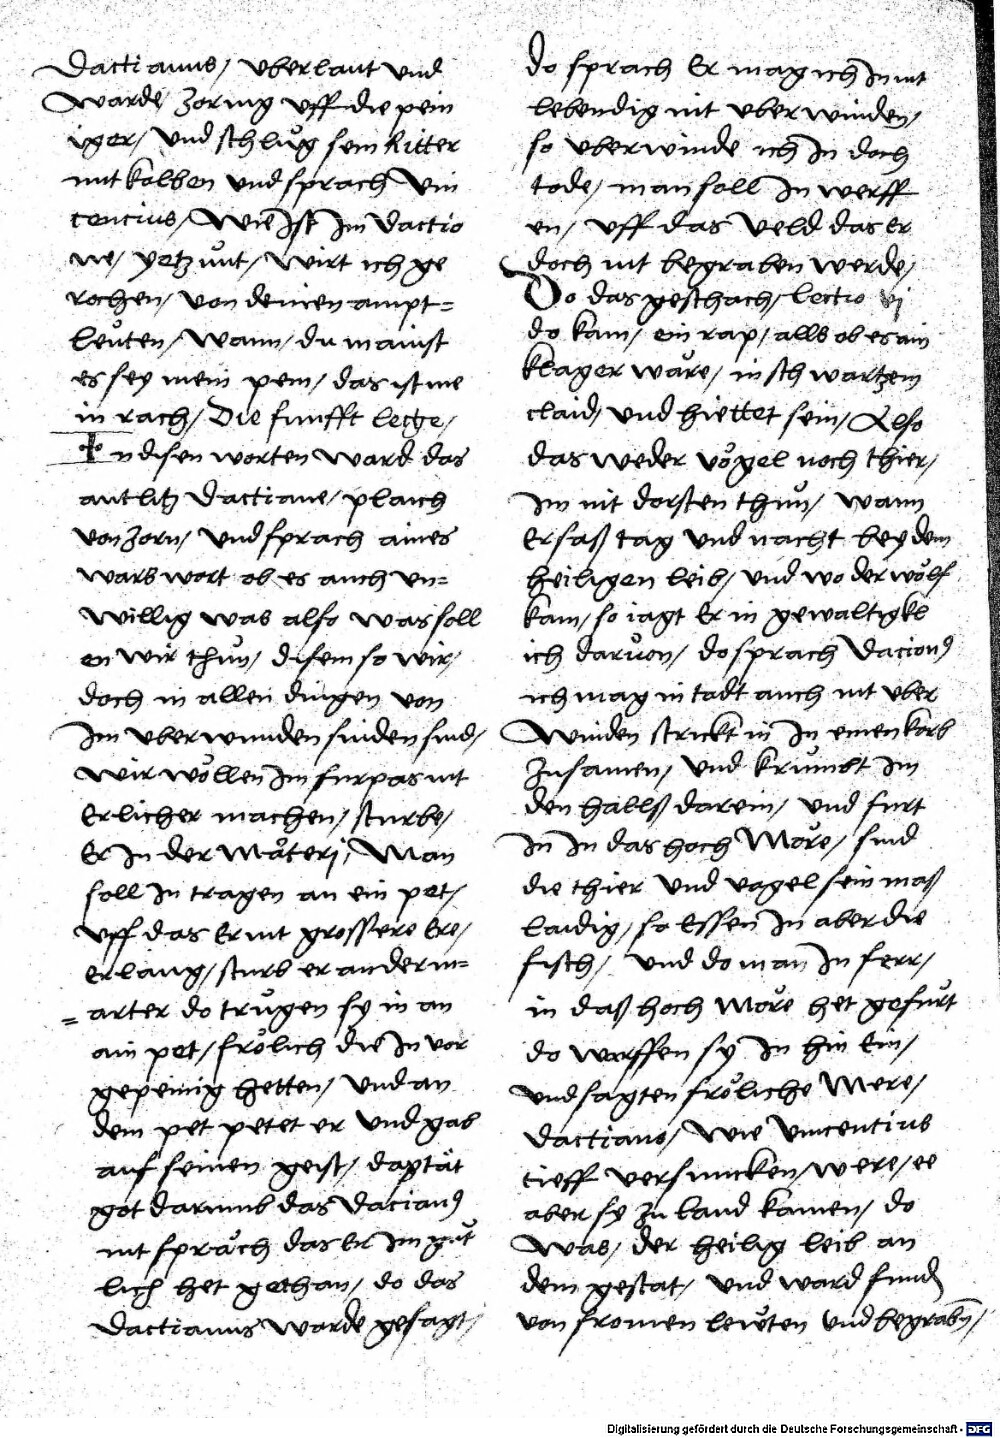 Dactianus / vberlaut vnd
warde / zornig vff die pein
iger / vnd schlůg sein Ritter
mit kolben vnd sprach Vin
cencius / Wie Ist Im Dactio
ne / yetzunt / wirt ich ge
rochen / von deinen ampt=
leuten / Wann / du mainst
es sey mein pein / das ist me
in rach / Die funfft letze /
In disen worten ward das
antlitz Dactiane / plaich
von zorn / vnd sprach aines
warb wort ob es auch vn=
willig was also was soll
en wir thůn / disem so wir /
doch in allen dingen von
Im vberwunden sinden sind /
wir wöllen Im furpas nit
Erlicher machen / sturbe /
Er In der Måterj / Man
soll In tragen an ein pet /
vff das Er nit grossere Ere /
erlang / sturb er ander m=
=arter do trůgen sy in an
ain pet / frölich die In vor
gepeinig hetten / vnd an
dem pet petet er vnd gab
auf seinen geist / dastät
got darumb das Dacianus
nit sprach das Er Im gůt
lich het gethan / do das
Dactianus warde gesagt /
do sprach Er mag ich In nit
lebendig nit vberwinden /
so vberwinde ich In doch
tode / man soll In werff
en / vff das veld das er
doch nit begraben werde /
Do das geschach / lectio vj
do kam / ein rap / alls ob es ain
klager wåre / in schwartzem
claid / vnd hiettet sein / Also
das weder vögel noch thier /
Im nit dorsten thůn / wann
Er saß tag vnd nacht bey dem
heiligen leib / vnd wo der wolf
kam / so iagt Er in gewaltigkl
ich daruon / do sprach Dacionus
ich mag in todt auch nit vber
winden strickt in In einen korb
zusamen / vnd krumbt Im
den hallß darein / vnd furt
In In das hoch Möre / sind
die thier vnd vogel sein maß
laidig / so Essen In aber die
fisch / vnd do man In ferr /
in daß hoch möre het gefůrt
do warffen sy In hin Ein /
vnd sagten fröliche Mere /
Dactiano / wie Vincentius
tieff versuncken / were / ee
aber sy zu land kamen / do
was / der heilig leib an
dem gestat / vnd ward fund
von fromen leuten vnd begrabn /
Digitalisierung gefördert durch die Deutsche Forschungsgemeinschaft - DFG